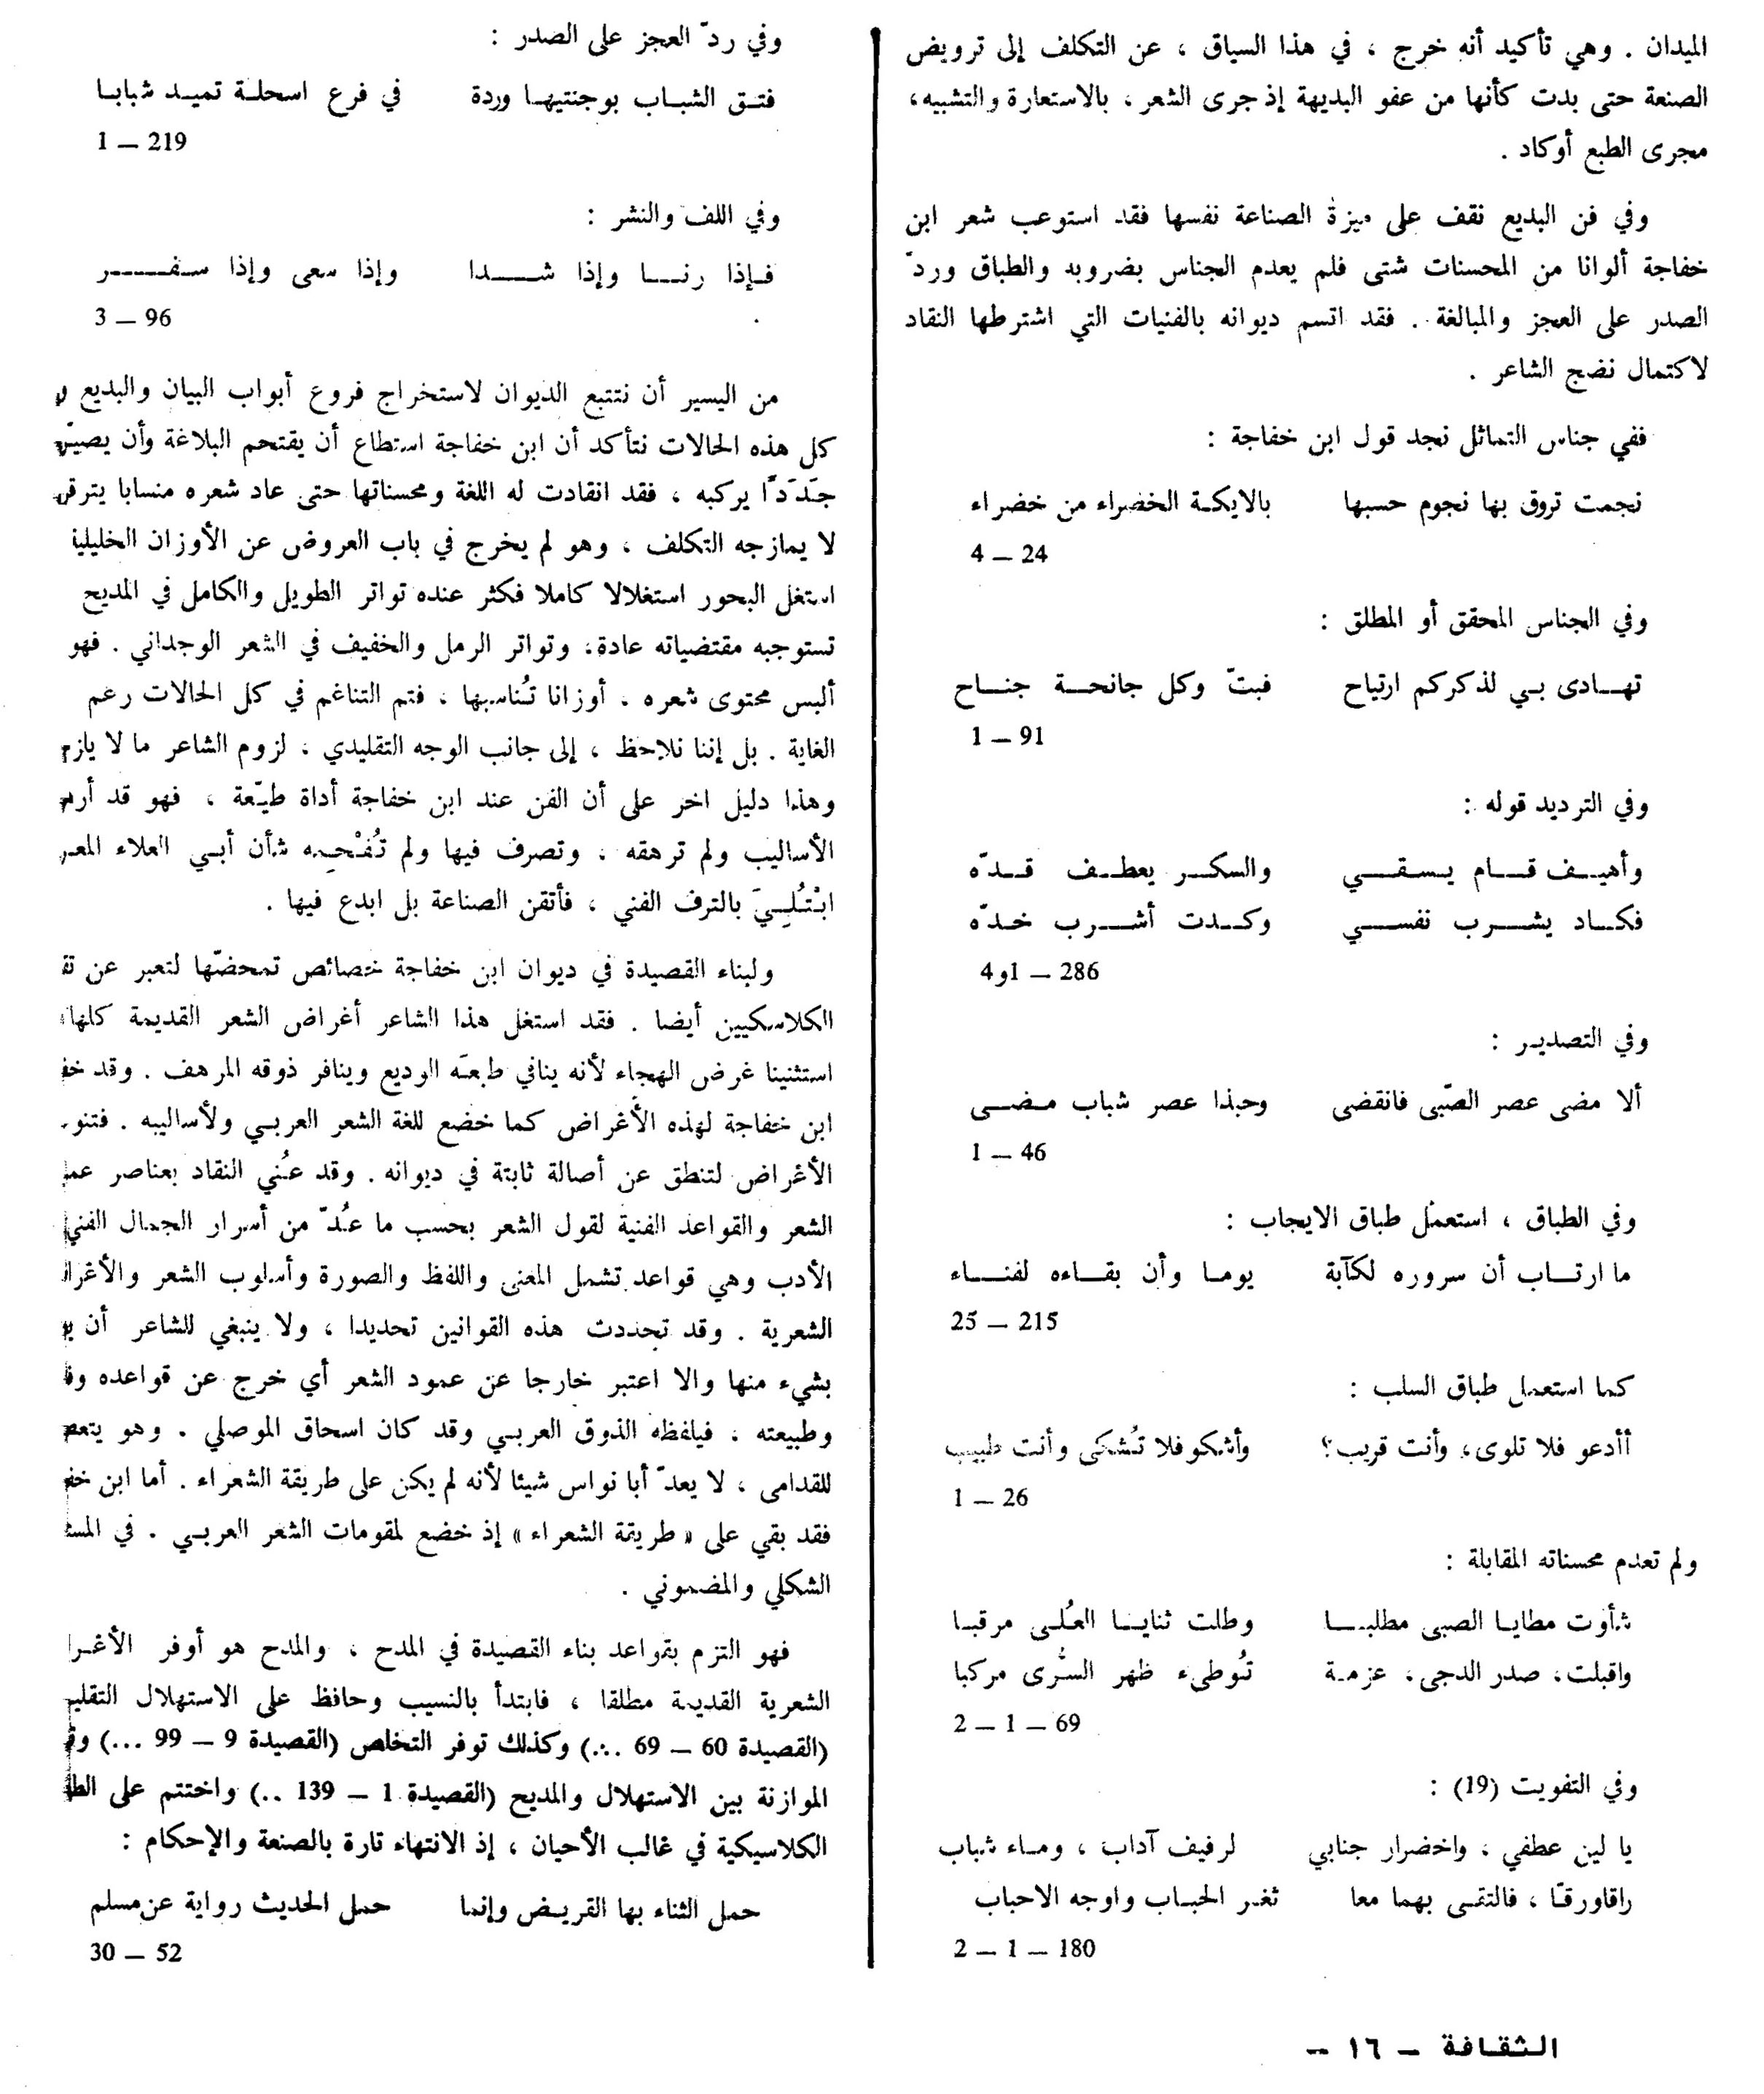 الميدان . وهي تأكيد أنه خرج ، في هذا السياق ، عن التكلف إلى ترويض
الصنعة حتى بدت كأنها من عفو البديهة إذ جرى الشعر ، بالاستعارة والتشبيه،
مجرى الطبع أوكاد .
وفي فن البديع نقف على ميزة الصناعة نفسها فقد استوعب شعر ابن
خفاجة ألوانا من المحسنات شتى فلم يعدم الجناس بضروبه والطباق وردّ
الصدر على العجز والمبالغة . فقد اتسم ديوانه بالفنيات التي اشترطها النقاد
لاكتمال نضج الشاعر .
ففي جناس التماثل نجد قول ابن خفاجة :
نجمت تروق بها نجوم حسبها بالايكة الخضراء من خضراء
24 — 4
وفي الجناس المحقق أو المطلق :
تهادى بي لذكركم ارتياح فبتّ وكل جانحة جناح
91 — 1
وفي الترديد قوله :
وأهيف قام يسقي والسكر يعطف قدّه
فكاد يشرب نفسي وكدت أشرب خدّه
286 — 1و4
وفي التصدير :
ألا مضى عصر الصّبى فانقضى وحبذا عصر شباب مضى
46 — 1
وفي الطباق ، استعمل طباق الايجاب :
ما ارتاب أن سروره لكآبة يوما وأن بقاءه لفناء
215 — 25
كما استعمل طباق السلب :
أأدعو فلا تلوى، وأنت قريب؟ وأشكو فلا تُشكى وأنت طبيب
26 — 1
ولم تعدم محسناته المقابلة :
شأوت مطايا الصبى مطلبا وطلت ثنايا العُلى مرقبا
واقبلت، صدر الدجى، عزمة تُوطىء ظهر السُّرى مركبا
69 — 1 — 2
وفي التفويت (19) :
يا لين عطفي ، واخضرار جنابي لرفيف آداب ، وماء شباب
راقاورقّا ، فالتقى بهما معا ثغر الحباب واوجه الاحباب
180 — 1 — 2
وفي ردّ العجز على الصدر :
فتق الشباب بوجنتيها وردة في فرع اسحلة تميد شبابا
219 — 1
وفي اللف والنشر :
فإذا رنا وإذا شدا وإذا سعى وإذا سفر
96 — 3
من اليسير أن نتتبع الديوان لاستخراج فروع أبواب البيان والبديع و
كل هذه الحالات نتأكد أن ابن خفاجة استطاع أن يقتحم البلاغة وأن يصيّر
جَدَدًا يركبه ، فقد انقادت له اللغة ومحسناتها حتى عاد شعره منسابا يترقر
لا يمازجه التكلف ، وهو لم يخرج في باب العروض عن الأوزان الخليلية
استغل البحور استغلالا كاملا فكثر عنده تواتر الطويل والكامل في المديح
تستوجبه مقتضياته عادة، وتواتر الرمل والخفيف في الشعر الوجداني . فهو
ألبس محتوى شعره . أوزانا تُناسبها ، فتم التناغم في كل الحالات رغم
الغاية . بل إننا نلاحظ ، إلى جانب الوجه التقليدي ، لزوم الشاعر ما لا يلزم
وهذا دليل اخر على أن الفن عند ابن خفاجة أداة طيّعة ، فهو قد
الأساليب ولم ترهقه ، وتصرف فيها ولم تُفْحِمه شأن أبي العلاء المعر
ابْتُلِيَ بالترف الفني ، فأتقن الصناعة بل ابدع فيها .
ولبناء القصيدة في ديوان ابن خفاجة خصائص تمحضّها لتعبر عن
الكلاسكيين أيضا . فقد استغل هذا الشاعر أغراض الشعر القديمة كلها
استثنينا غرض الهجاء لأنه ينافي طبعَه الوديع وينافر ذوقه المرهف . وقد
ابن خفاجة لهذه الأغراض كما خضع للغة الشعر العربي ولأساليبه . فتنو
الأغراض لتنطق عن أصالة ثابتة في ديوانه . وقد عُني النقاد بعناصر
الشعر والقواعد الفنية لقول الشعر بحسب ما عُدّ من أسرار الجمال الفني
الأدب وهي قواعد تشمل المعنى واللفظ والصورة وأسلوب الشعر والأغرا
الشعرية . وقد تحددت هذه القوانين تحديدا ، ولا ينبغي للشاعر أن
بشيء منها والا اعتبر خارجا عن عمود الشعر أي خرج عن قواعده
وطبيعته ، فيلفظه الذوق العربي وقد كان اسحاق الموصلي . وهو يتعصب
للقدامى ، لا يعدّ أبا نواس شيئا لأنه لم يكن على طريقة الشعراء . أما ابن
فقد بقي على « طريقة الشعراء » إذ خضع لمقومات الشعر العربي . في
الشكلي والمضموني .
فهو التزم بقواعد بناء القصيدة في المدح ، والمدح هو أوفر الأغرا
الشعرية القديمة مطلقا ، فابتدأ بالنسيب وحافظ على الاستهلال التقليد
(القصيدة 60 — 69 ...) وكذلك توفر التخلص (القصيدة 9 — 99 ...)
الموازنة بين الاستهلال والمديح (القصيدة 1 — 139 ..) واختتم على
الكلاسيكية في غالب الأحيان ، إذ الانتهاء تارة بالصنعة والإحكام :
حمل الثناء بها القريض وإنما حمل الحديث رواية عن مسلم
52 — 30
الثقافة – ١٦ –